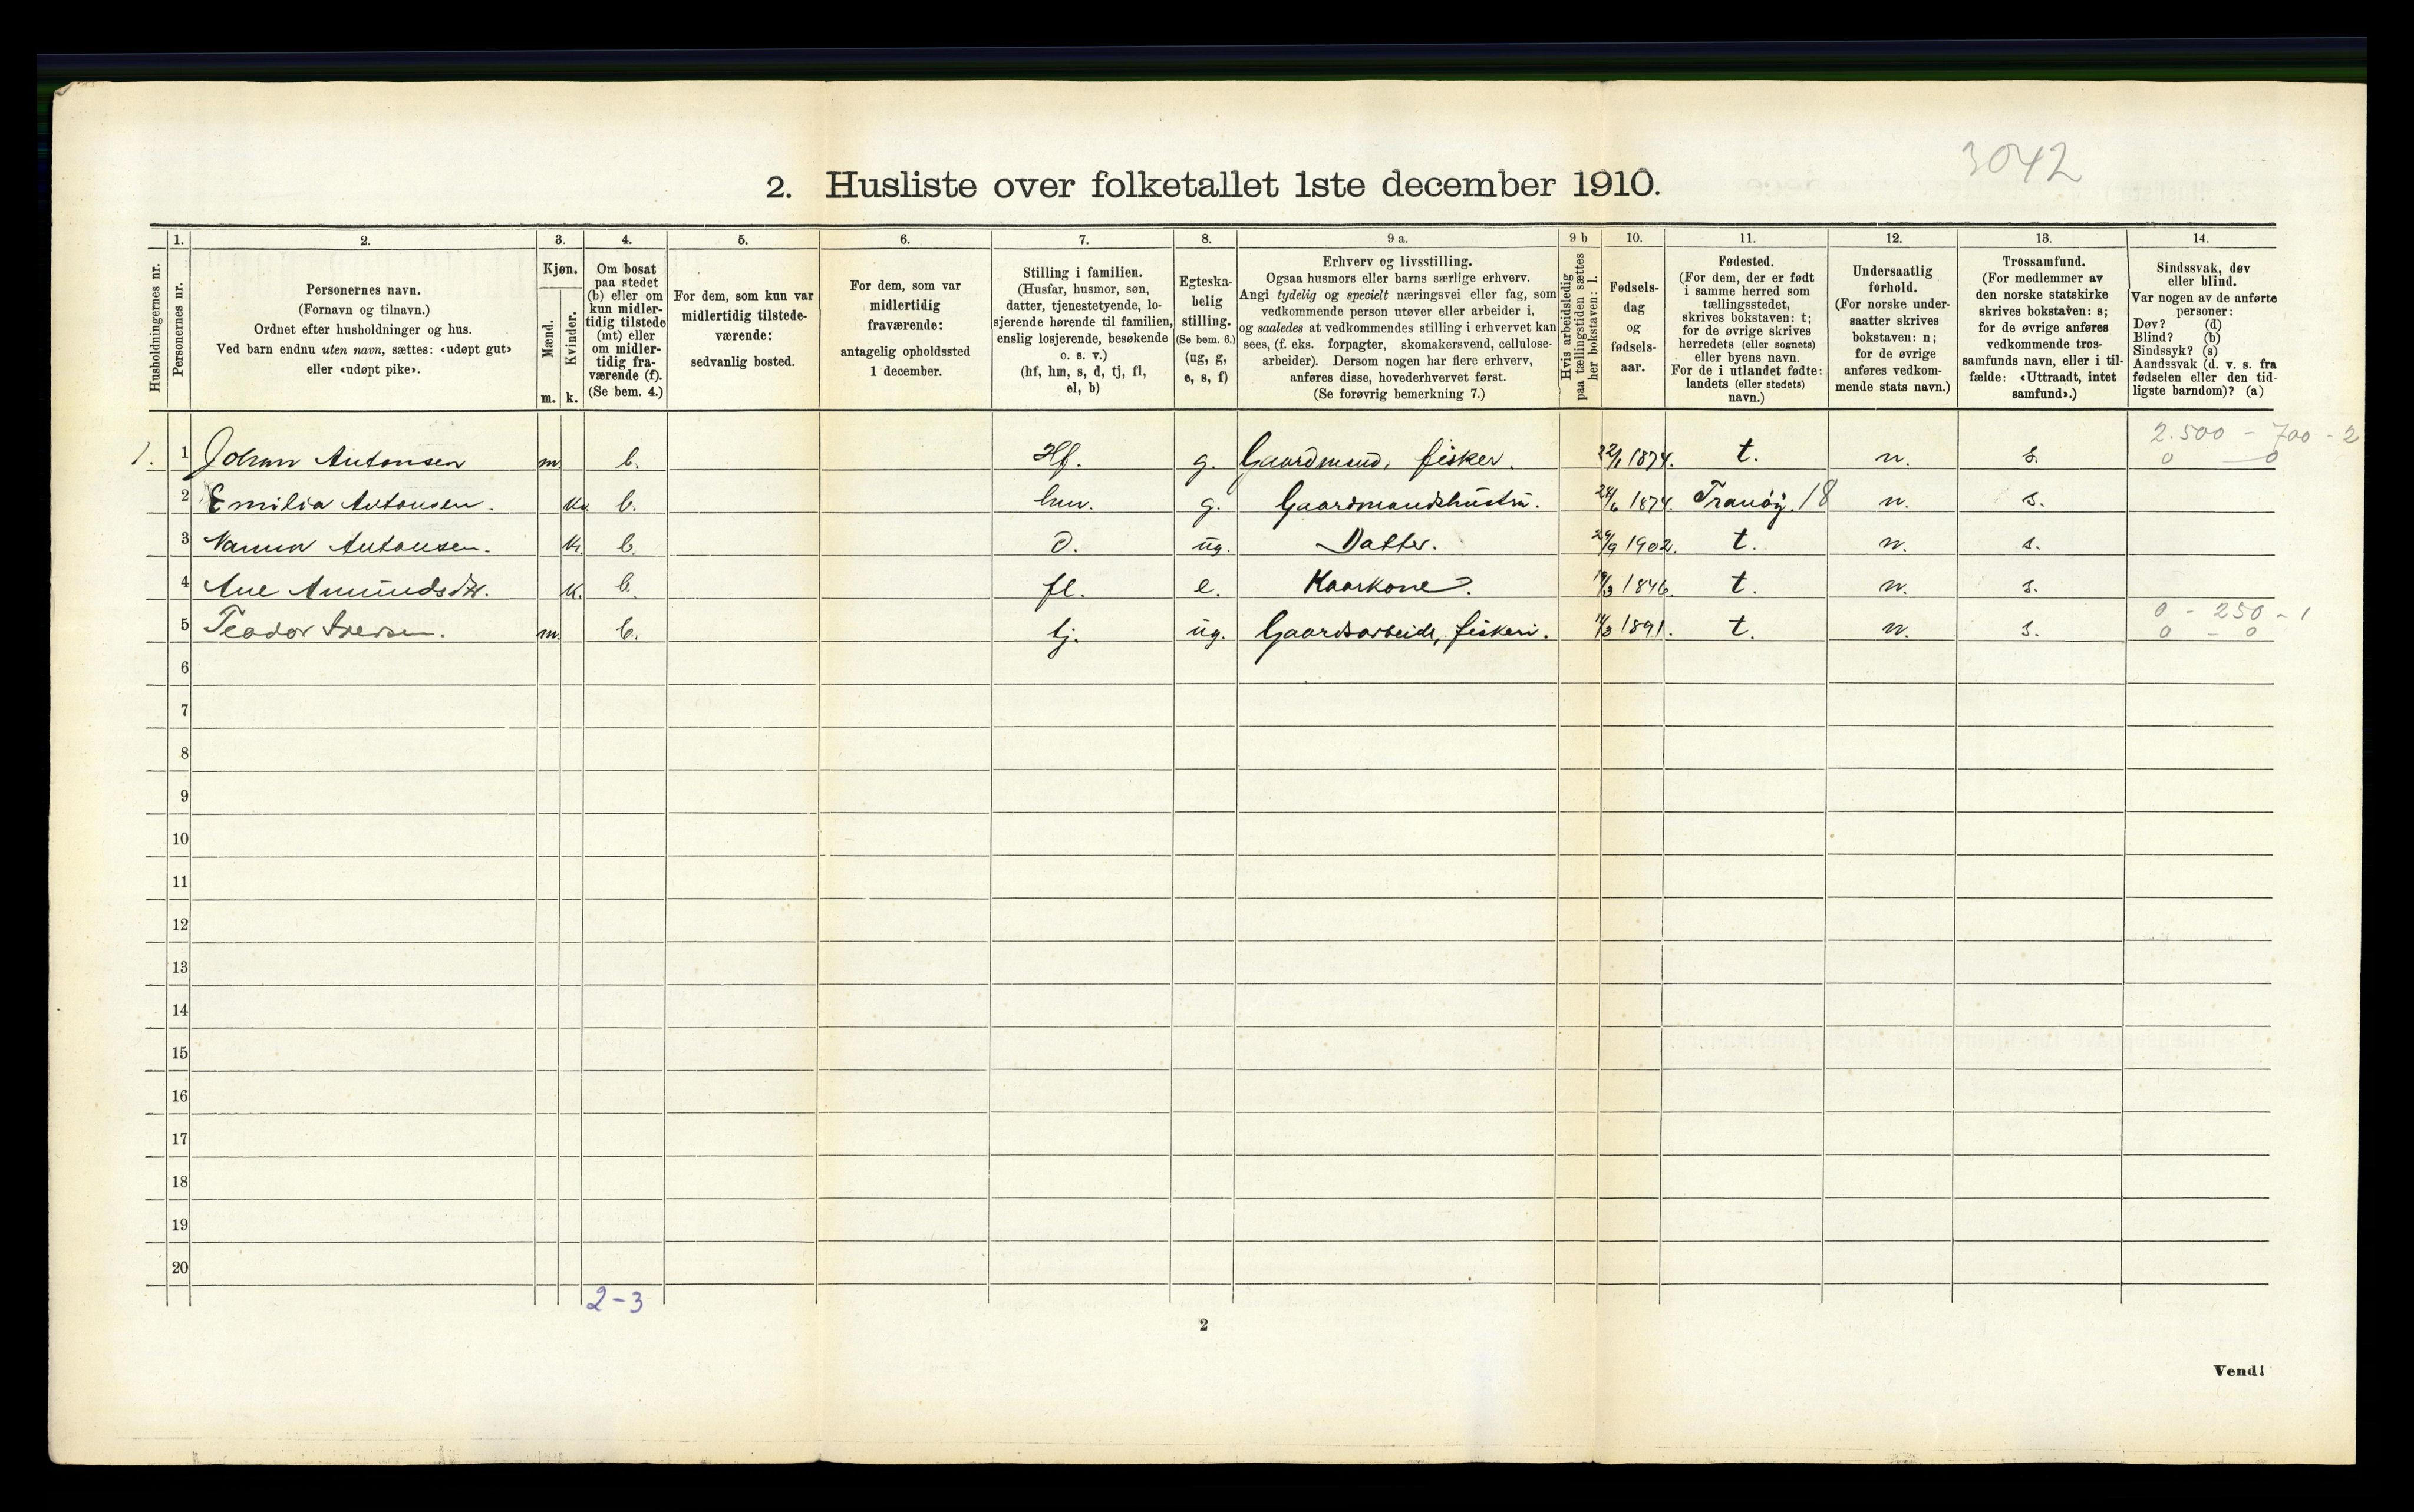 3042
2. Husliste over folketallet 1ste december 1910.
Husholdningernes nr.
1. Personernes nr.
2. Personernes navn.
(Fornavn og tilnavn.)
Ordnet efter husholdninger og hus.
Ved barn endnu uten navn, sættes: «udøpt gut»
eller «udøpt pike».
3. Kjøn.
Mænd. m.
Kvinder. k.
4. Om bosat
paa stedet
(b) eller om
kun midler-
tidig tilstede
(mt) eller
om midler-
tidig fra-
værende (f).
(Se bem. 4.)
5. For dem, som kun var
midlertidig tilstede-
værende:
sedvanlig bosted.
6. For dem, som var
midlertidig
fraværende:
antagelig opholdssted
1 december.
7. Stilling i familien.
(Husfar, husmor, søn,
datter, tjenestetyende, lo-
sjerende hørende til familien,
enslig losjerende, besøkende
o. s. v.)
(hf, hm, s, d, tj, fl,
el, b)
8. Egteska-
belig
stilling.
(Se bem. 6.)
(ug, g,
e, s, f)
9 a. Erhverv og livsstilling.
Ogsaa husmors eller barns særlige erhverv.
Angi tydelig og specielt næringsvei eller fag, som
vedkommende person utøver eller arbeider i,
og saaledes at vedkommendes stilling i erhvervet kan
sees, (f. eks. forpagter, skomakersvend, cellulose-
arbeider). Dersom nogen har flere erhverv,
anføres disse, hovederhvervet først.
(Se forøvrig bemerkning 7.)
9 b Hvis arbeidsledig
paa tællingstiden sættes
her bokstaven: l.
10. Fødsels-
dag
og
fødsels-
aar.
11. Fødested.
(For dem, der er født
i samme herred som
tællingsstedet,
skrives bokstaven: t;
for de øvrige skrives
herredets (eller sognets)
eller byens navn.
For de i utlandet fødte:
landets (eller stedets)
navn.)
12. Undersaatlig
forhold.
(For norske under-
saatter skrives
bokstaven: n;
for de øvrige
anføres vedkom-
mende stats navn.)
13. Trossamfund.
(For medlemmer av
den norske statskirke
skrives bokstaven: s;
for de øvrige anføres
vedkommende tros-
samfunds navn, eller i til-
fælde: «Uttraadt, intet
samfund».)
14. Sindssvak, døv
eller blind.
Var nogen av de anførte
personer:
Døv? (d)
Blind? (b)
Sindssyk? (s)
Aandssvak (d. v. s. fra
fødselen eller den tid-
ligste barndom)? (a)
2.500 - 700 - 2
1. 1 Johan Antonsen m b. Hf. g. Gaardmand, fisker. 22/1 1874. t. n. s. 0 - 0
2 Emilia Antonsen. k. b. hm. g. Gaardmandshustru. 24/6 1874. Tranöy. 18 n. s.
3 Nanna Antonsen. k. b. d. ug. Datter. 29/9 1902. t. n. s.
4 Ane Amundsdtr. k. b. fl. e. Kaarkone. 19/3 1846. t. n. s.
0 - 250 - 1
5 Teodor Iversen. m. b. tj. ug. Gaardsarbeide, fiskeri. 14/3 1891. t. n. s. 0 - 0
6
7
8
9
10
11
12
13
14
15
16
17
18
19
20
2-3
2
Vend!